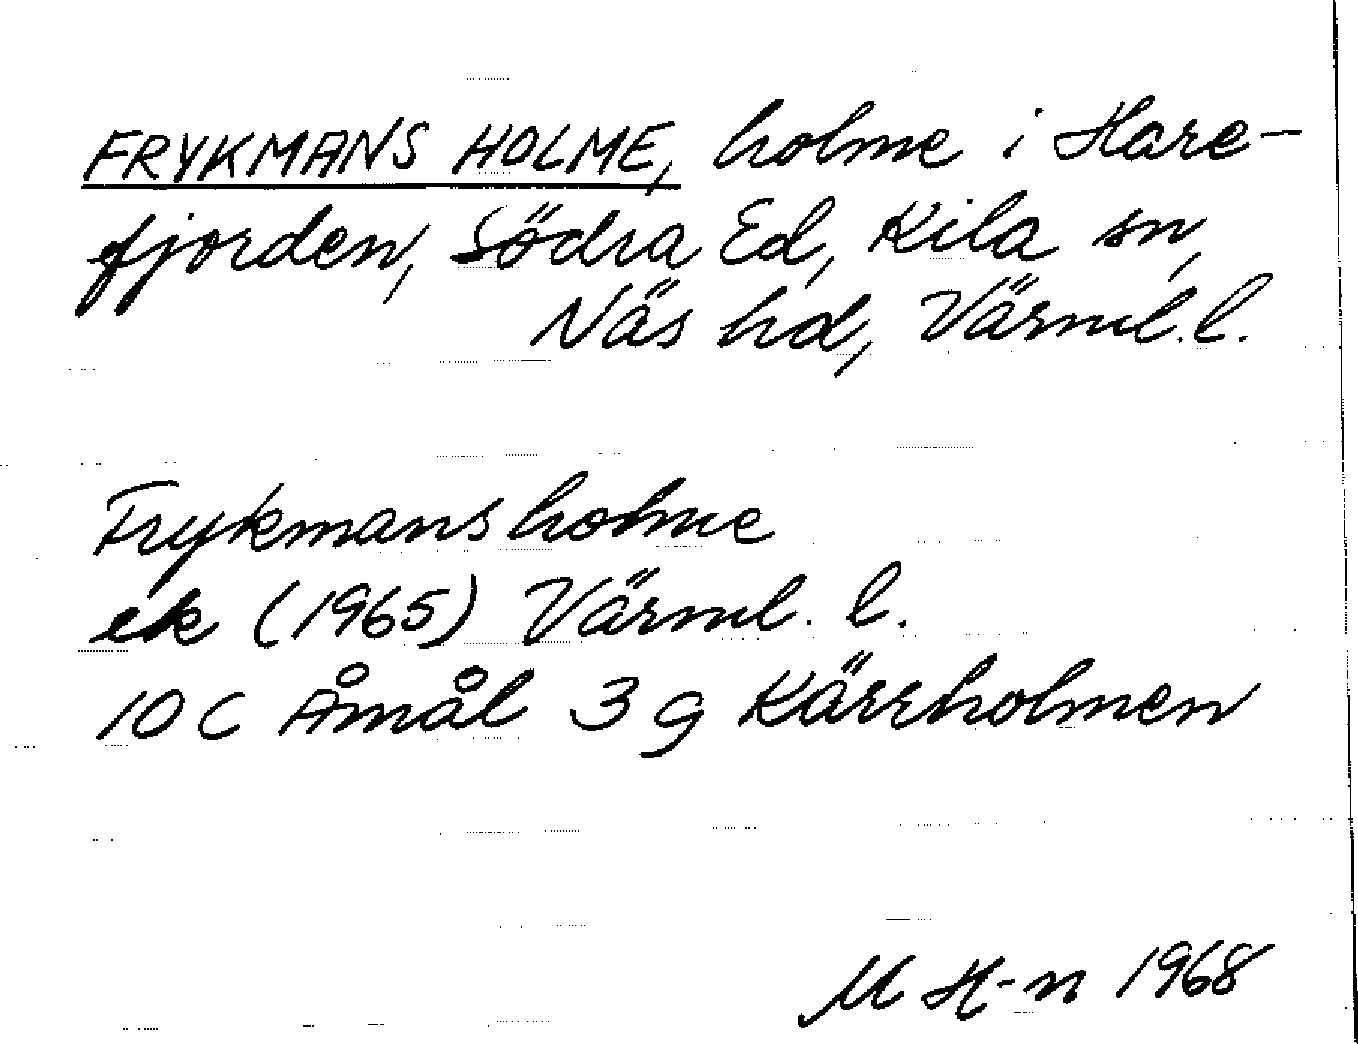 FRYKMANS HOLME, holme i Hare-
fjorden, Södra Ed, Kila sn,
Näs hd, Värml. l.
Frykmansholme
ek (1965) Värml. l.
10 C Åmål 3 g Kärrholmen
M H-n 1968